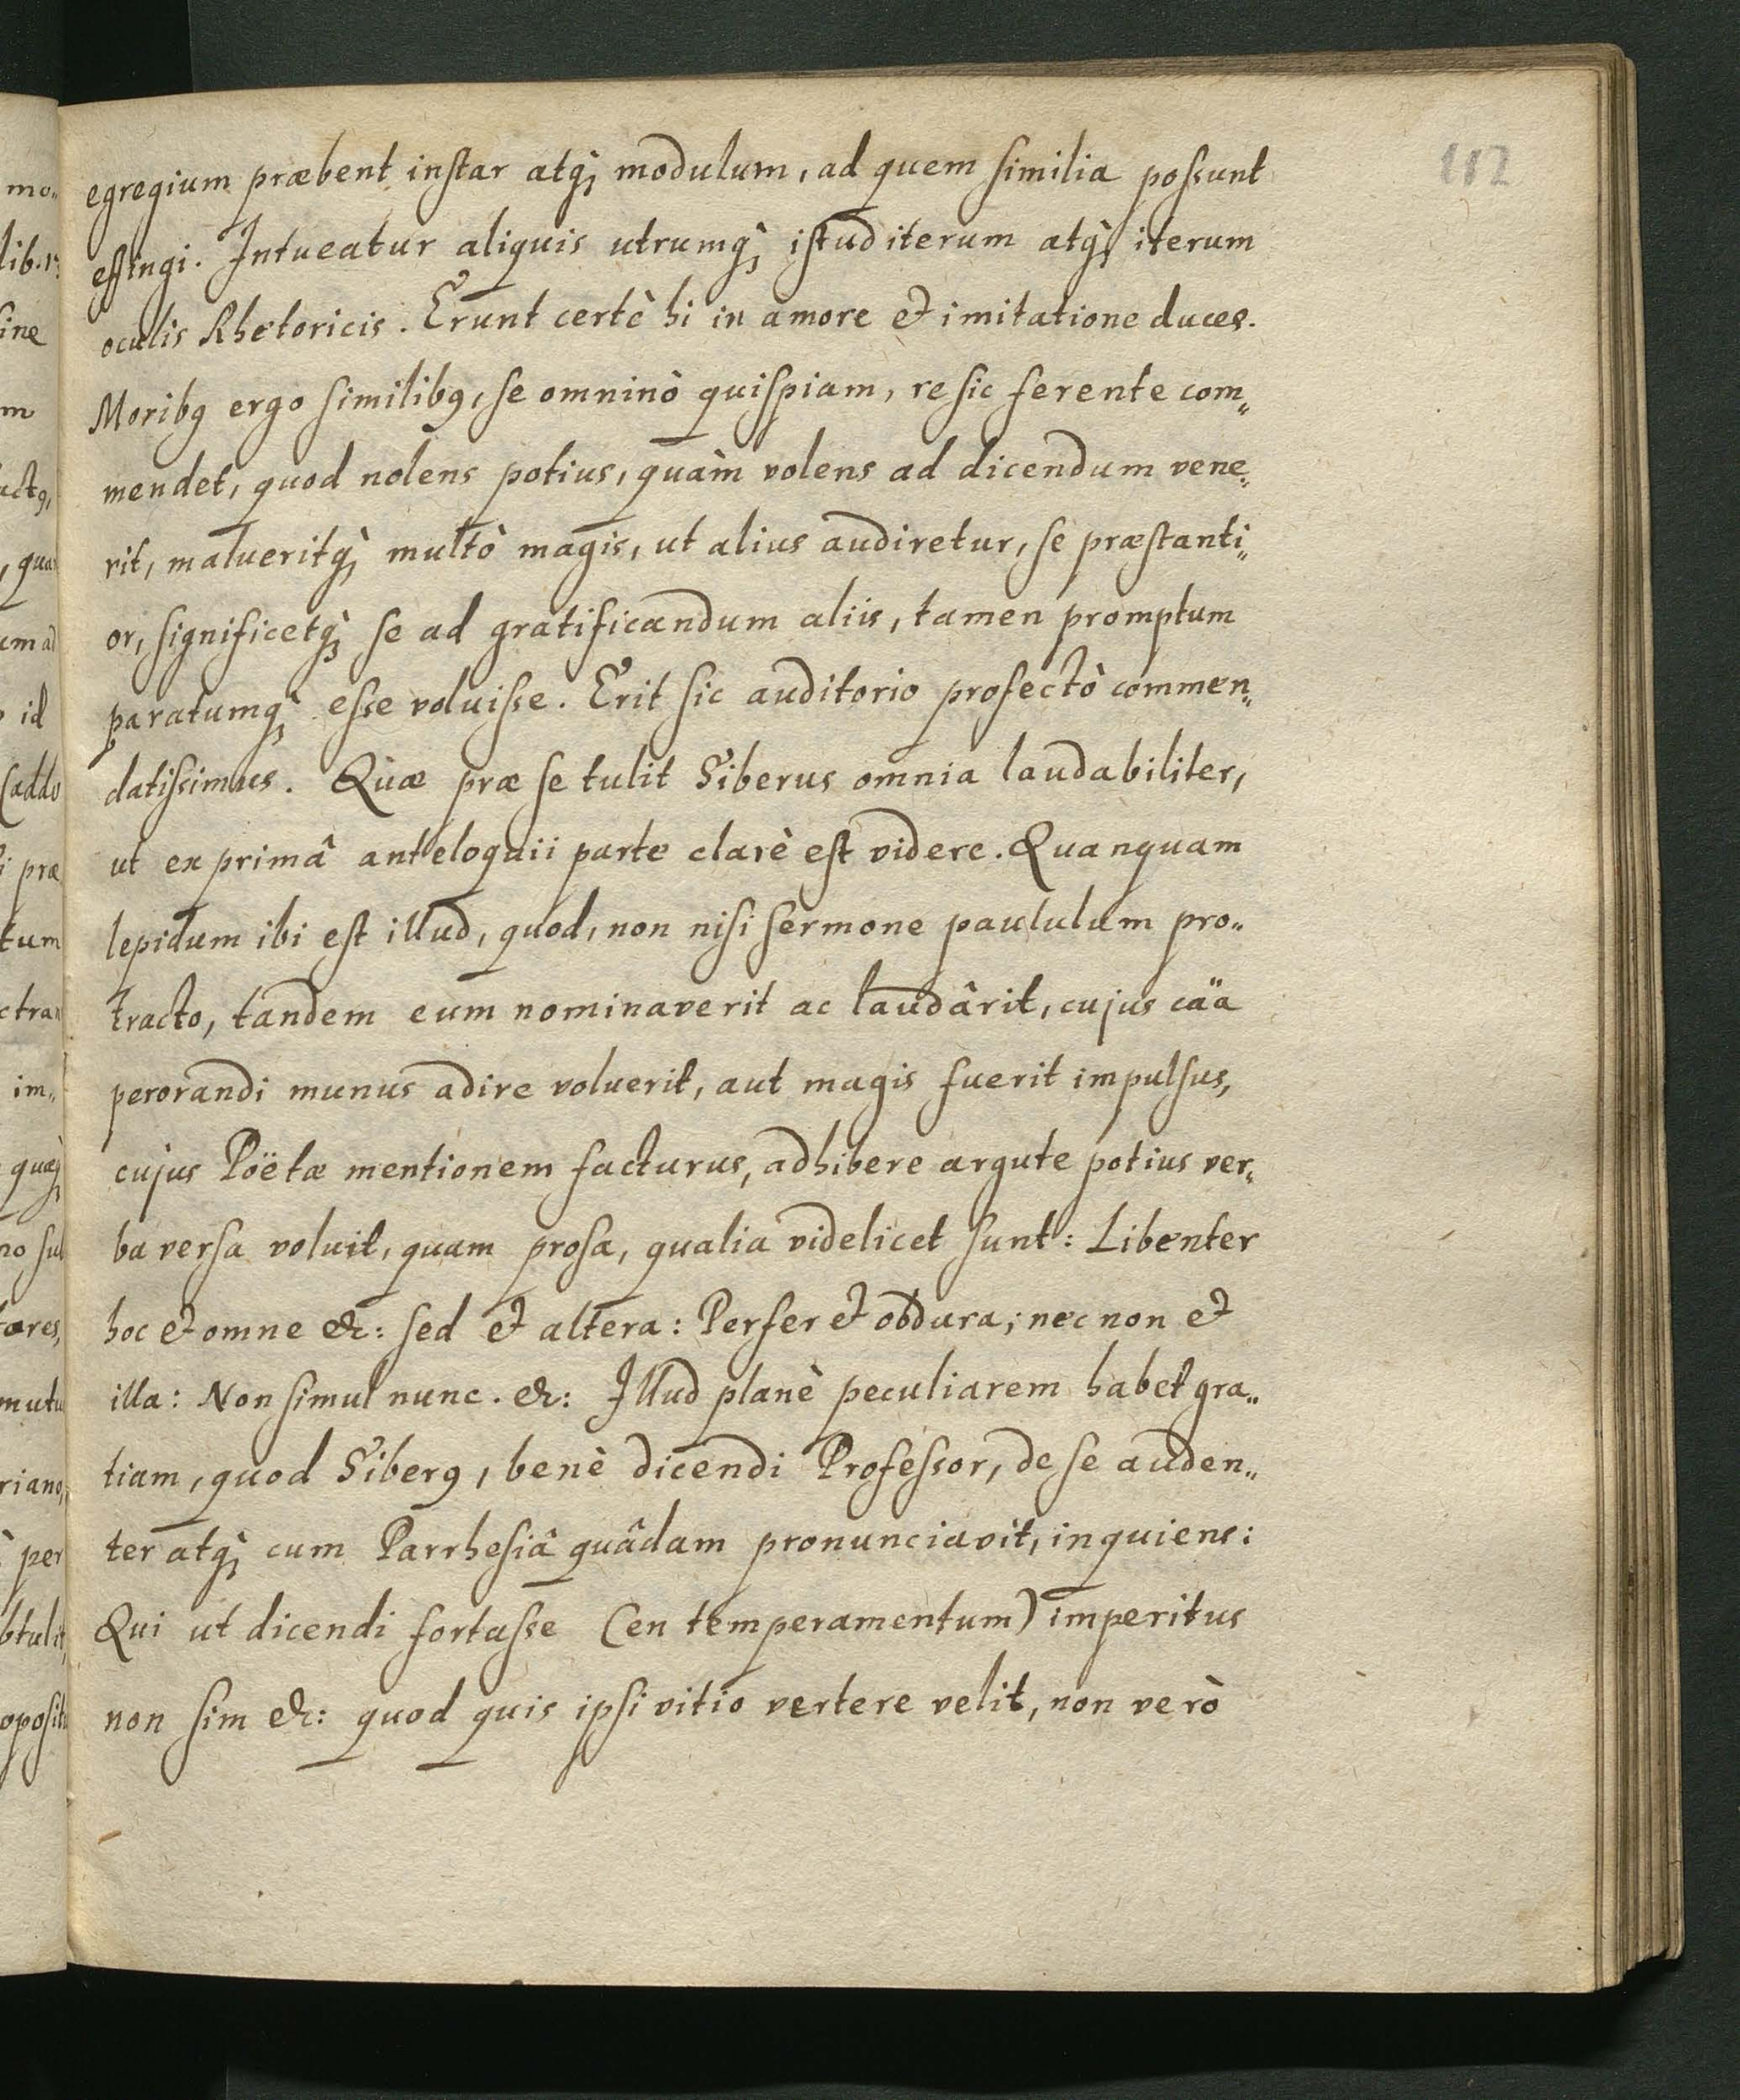 112
egregium præbent instar atq; modulum, ad quem similia possunt
effingi. Intueatur aliquis utrumq; istud iterum atq; iterum
oculis Rhetoricis. Erunt certè hi in amore et imitatione duces.
Moribq ergo similibq, se omninò quispiam, re sic ferente com„
mendet, quod nolens potius, quàm volens ad dicendum vene„
rit, malueritq; multò magis, ut alius audiretur, se præstanti„
or, significetq; se ad gratificandum aliis, tamen promptum
paratumq; esse voluisse. Erit sic auditorio profectò commen„
datissimus. Quæ præ se tulit Siberus omnia laudabiliter,
ut ex primâ anteloquii parte clarè est videre. Quanquam
lepidum ibi est illud, quod, non nisi sermone paululum pro„
tracto, tandem eum nominaverit ac laudârit, cujus cäa
perorandi munus adire voluerit, aut magis fuerit impulsus,
cujus Poëtæ mentionem facturus, adhibere argute potius ver„
ba versa voluit, quam prosa, qualia videlicet sunt: Libenter
hoc et omne &c: sed et altera: Perfer et obdura; nec non et
illa: Non simul nunc. &c: Illud planè peculiarem habet gra„
tiam, quod Siberq, benè dicendi Professor, de se auden„
ter atq; cum Parrhesiâ quâdam pronunciavit, inquiens:
Qui ut dicendi fortasse (en temperamentum) imperitus
non sim &c: quod quis ipsi vitio vertere velit, non verò